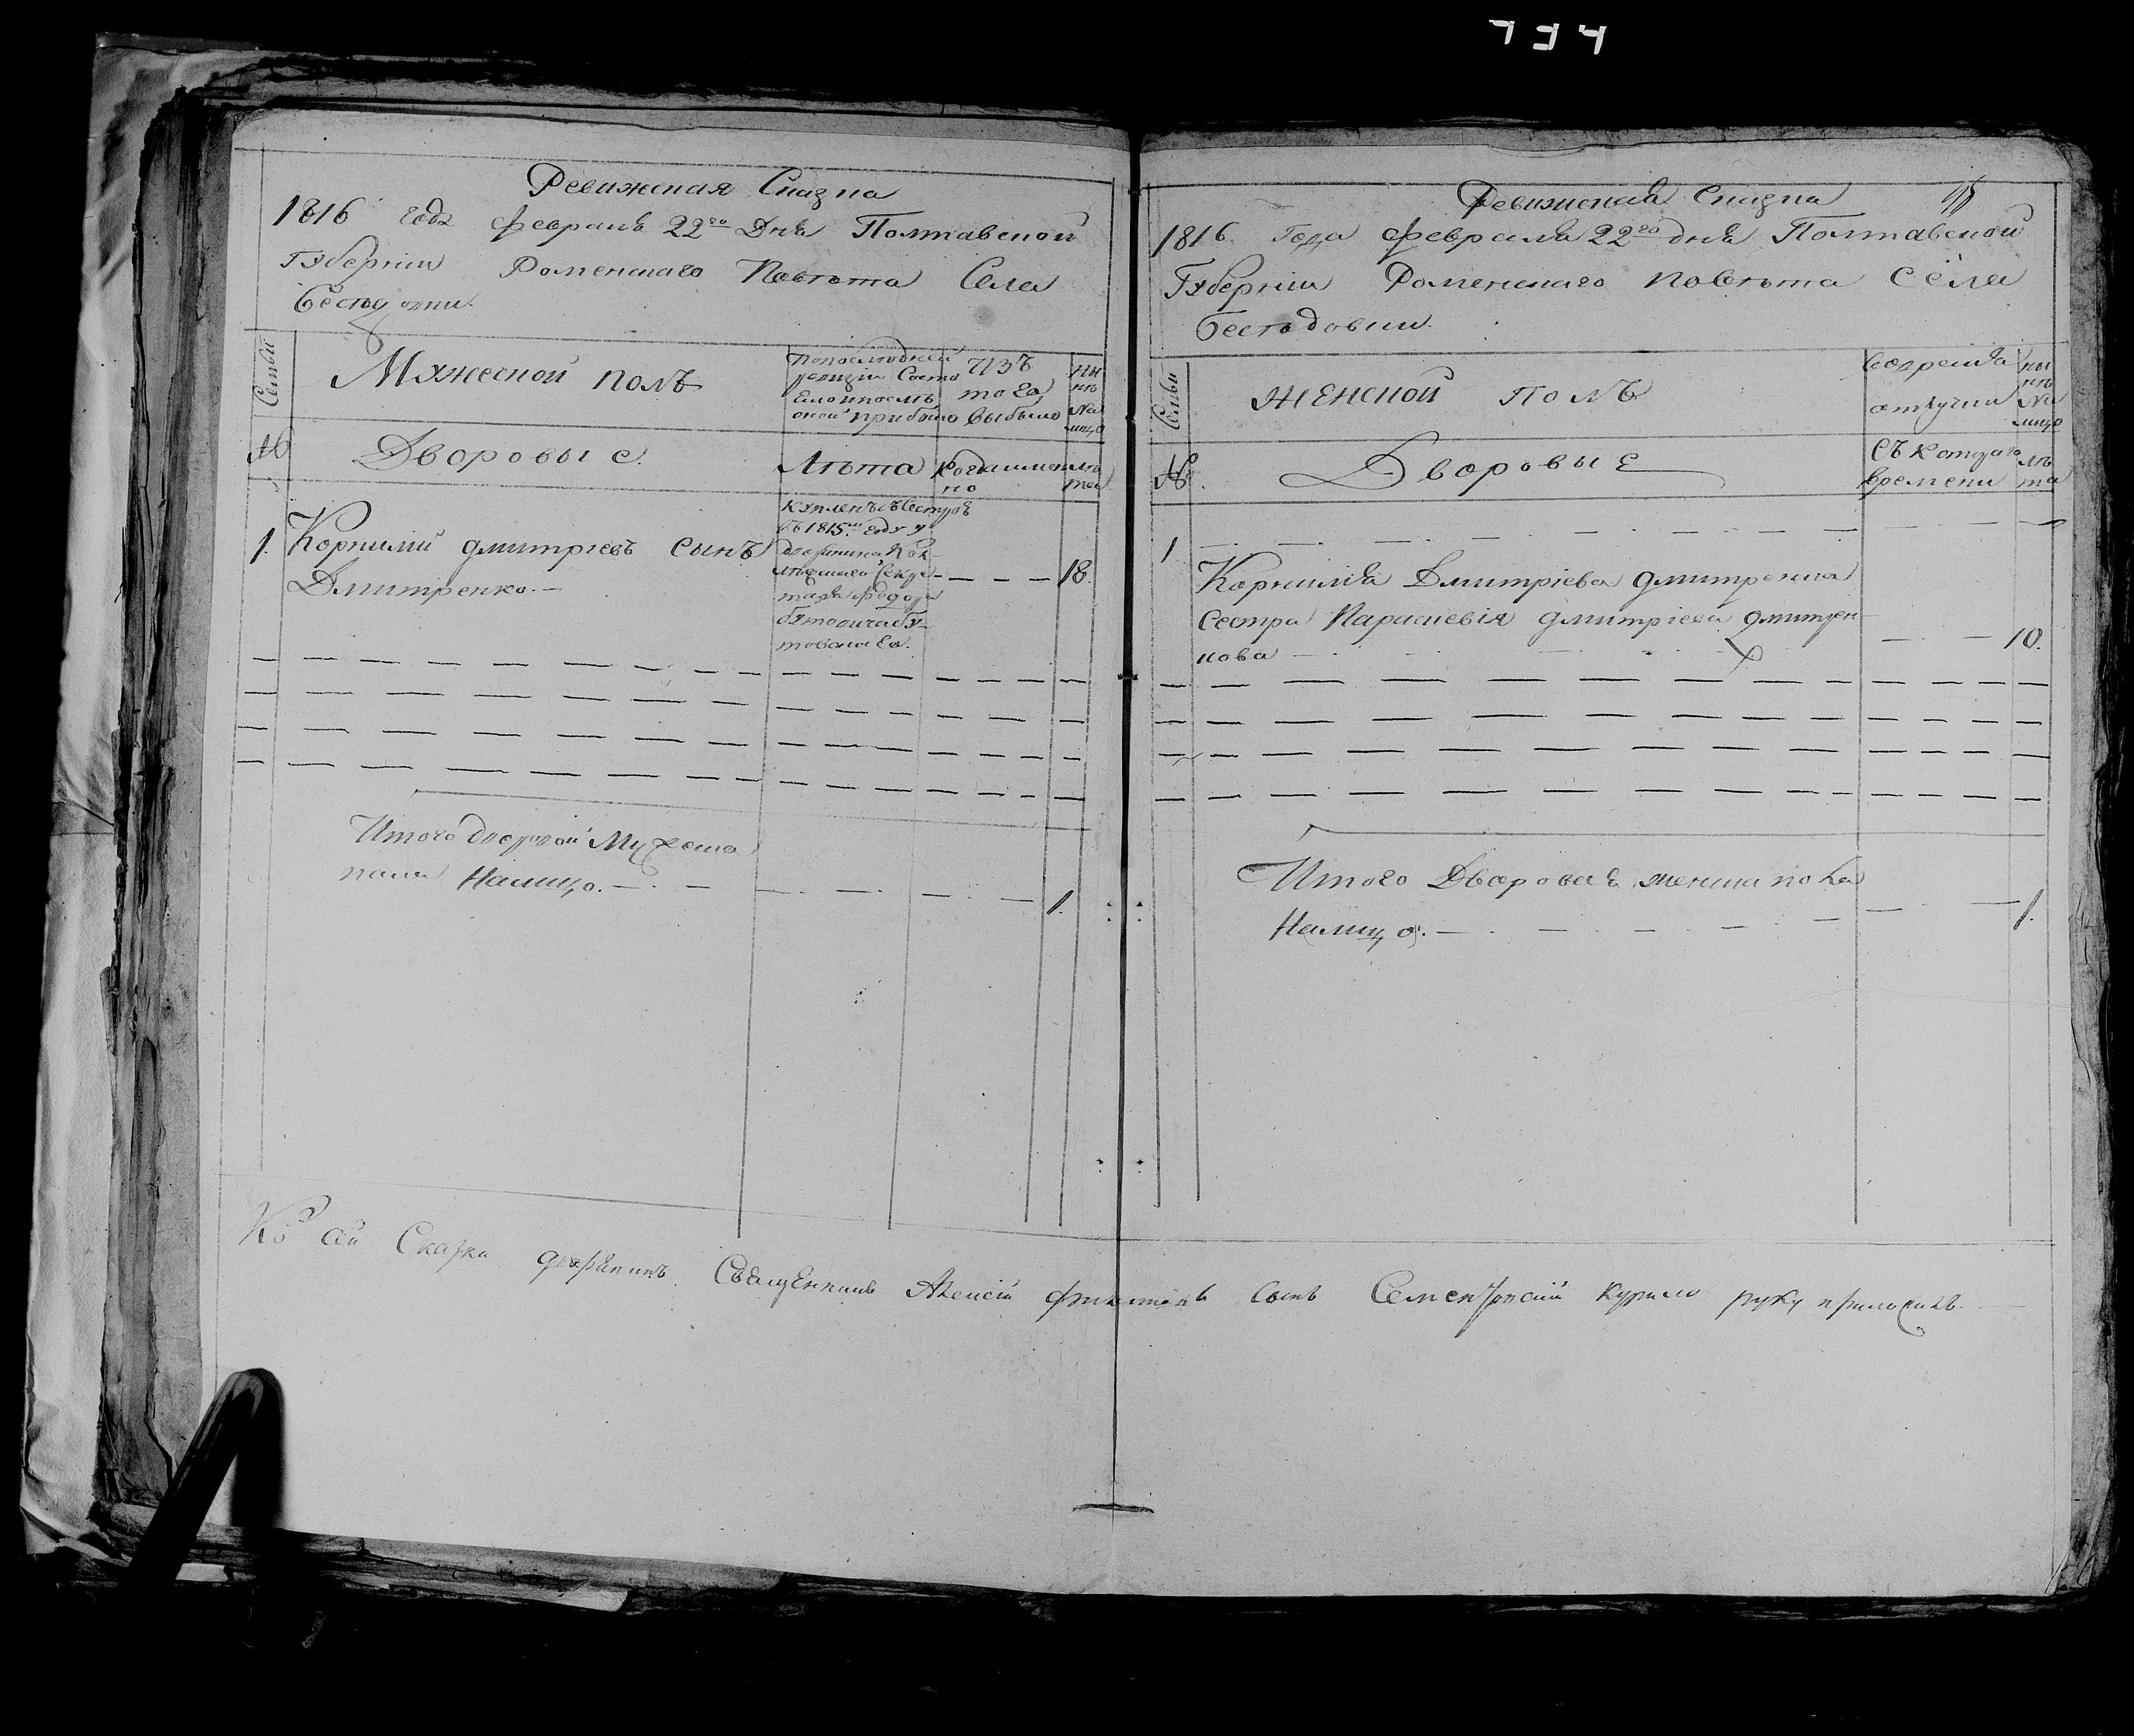 734
Ревижская Сказка
1816 года февраля 22го Дня Полтавской
Губернiи Роменскаго Повѣта Села
Беседовки.
Семьи
Мужеской полъ
попоследней
ревизiи Состо
яло ипослѣ
оной прибыло
Изъ
того
выбыло
Ны
нѣ
На
лицо
№
Дворовые.
Лѣта
Когда имен
но
Лѣ
та
1.
Корнилiй Дмитрiевъ Сынъ
Дмитренко.—
Купленъ съ Сестрою
въ 1815м году у
дворянина Кол-
лѣжскаго Секре-
таря Федора
18.
Итого дворовой Мужеска
пола Налицо.
1.
Ревижская Сказка
1816 Года Февраля 22го дня Полтавской
Губернiи Роменскаго повѣта Села
Беседовки.
Семьи
Женской Полъ
Вовремѣ
отлучки
ны
нѣ
На
лицо
№.
Дворовые
Съ Котораго
времени
лѣ
та
1
Корнилiя Дмитрiева Дмитренка
Сестра Параскевiя Дмитрiева Дмитрен-
кова
10.
Итого Дворовая женска пола
Налицо.
1.
Къ сей Сказки дворянинъ Священникъ Алексiй сынъ Семен Курило руку приложилъ.